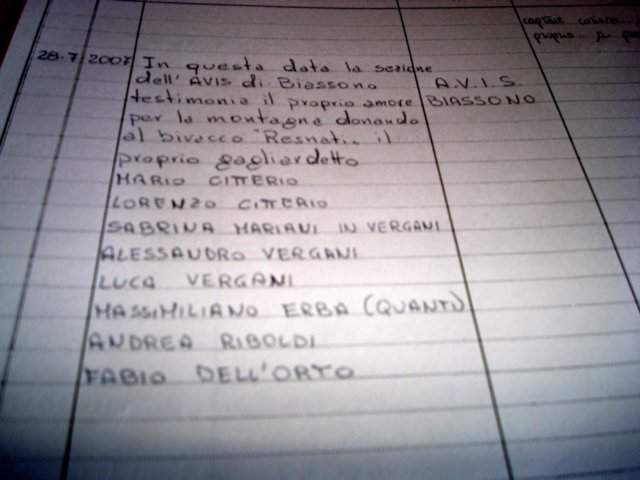 capitare
proprio
28.7.2007 In questa data la sezione
dell'AVIS di Biassono A.V.I.S.
testimonia il proprio amore BIASSONO
per la montagna donando
al bivacco "Resnati" il
proprio gagliardetto
MARIO CITTERIO
LORENZO CITTERIO
SABRINA MARIANI IN VERGANI
ALESSANDRO VERGANI
LUCA VERGANI
MASSIMILIANO ERBA (QUANTI)
ANDREA RIBOLDI
FABIO DELL'ORTO